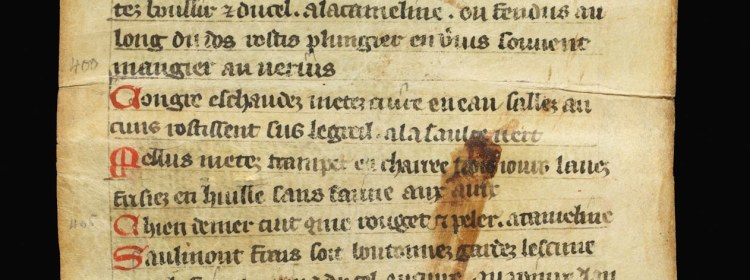 tez boullir ⁊ du cel. a la cameline. ou fendus au
long du dos rostis plungier en v̾ius souvent
mangier au verius
400
Congre eschaudez metez cuire en eau sallez au
cuns rostissent sus le greil. a la saulce vert
Mellus metez tremper en charree trois iours lauez
frisiez en huille sans farine aux aux
405
Chien de mer cuit que rouget ⁊ peler. a cameline
Saulmont frais soit boutonnez gardez leschine